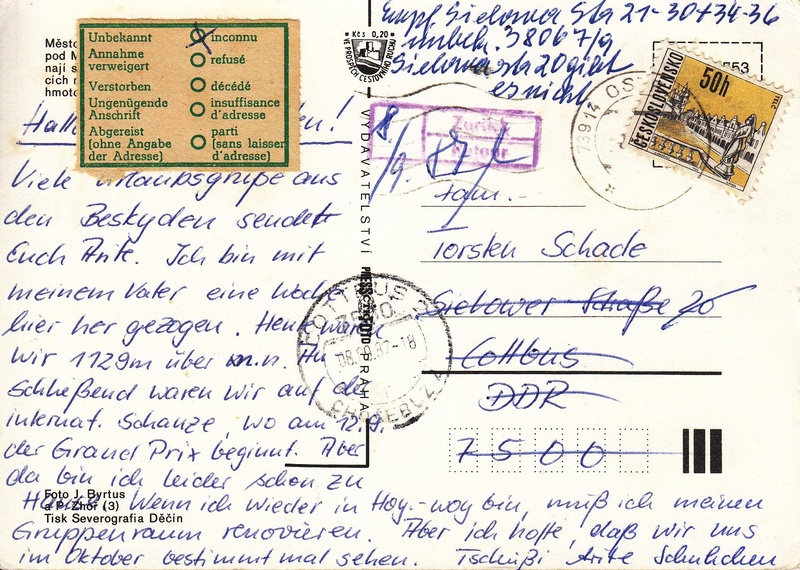 Unbekannt inconnu
Annahme verweigert refusé
Verstorben décédé
Ungenügende Anschrift insuffisance d'adresse
Abgereist (ohne Angabe der Adresse) parti (sans laisser d'adresse)
Město
pod M
nají s
cích r
hmoto
Kčs 0,20
Empf. Sielowa Str 21-30+34-36
unbek. 38067/9
Sielowa str 20 gibt
es nicht
ČESKOSLOVENSKO
50h
Zurück
8/9. 87
Hall
Viele Urlaubsgrüße aus
den Beskyden sendet
Euch Ante. Ich bin mit
meinem Vater eine Woche
hier her gezogen. Heute waren
wir 1129m über n.n. An
schließend waren wir auf der
internat. Schanze, wo am 12.9.
der Grand Prix beginnt. Aber
da bin ich leider schon zu
Hause. Wenn ich wieder in Hoy.-woy bin, muß ich meinen
Gruppenraum renovieren. Aber ich hoffe, daß wir uns
im Oktober bestimmt mal sehen. Tschüßi Ante
VYDAVATELSTVÍ PRESSFOTO PRAHA
Fam.
Torsten Schade
Sielower Straße 20
Cottbus
DDR
7500
COTTBUS
7500
08.09.87-18
CHOŚEBUZ
Foto J. Byrtus
a P. Zhoř (3)
Tisk Severografia Děčín